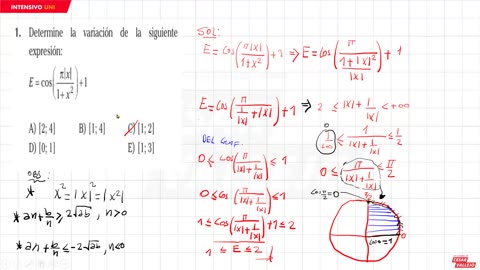 INTENSIVO UNI
1. Determine la variación de la siguiente
expresión:
E = cos(π|x| / 1+x²) + 1
A) [2; 4] B) [1; 4] C) [1; 2]
D) [0; 1] E) [1; 3]
OBS:
* x² = |x|² = |x²|
* an + b/n ≥ 2√ab, n>0
* an + b/n ≤ -2√ab, n<0
SOL:
E = cos(π|x| / 1+x²) + 1 ⇒ E = cos(π / (1+|x|² / |x|)) + 1
E = cos(π / (1/|x| + |x|)) + 1 ⇒ 2 ≤ |x| + 1/|x| < +∞
1/(+∞) ≤ 1 / (|x| + 1/|x|) ≤ 1/2
DEL GRAF.
0 ≤ cos(π / (|x| + 1/|x|)) ≤ 1
0 ≤ π / (|x| + 1/|x|) ≤ π/2
0 ≤ cos(π / (|x| + 1/|x|)) ≤ 1
cos π/2 = 0
1 ≤ cos(π / (|x| + 1/|x|)) + 1 ≤ 2
1 ≤ E ≤ 2
π/2
0
cos 0 = 1
CÉSAR
VALLEJO